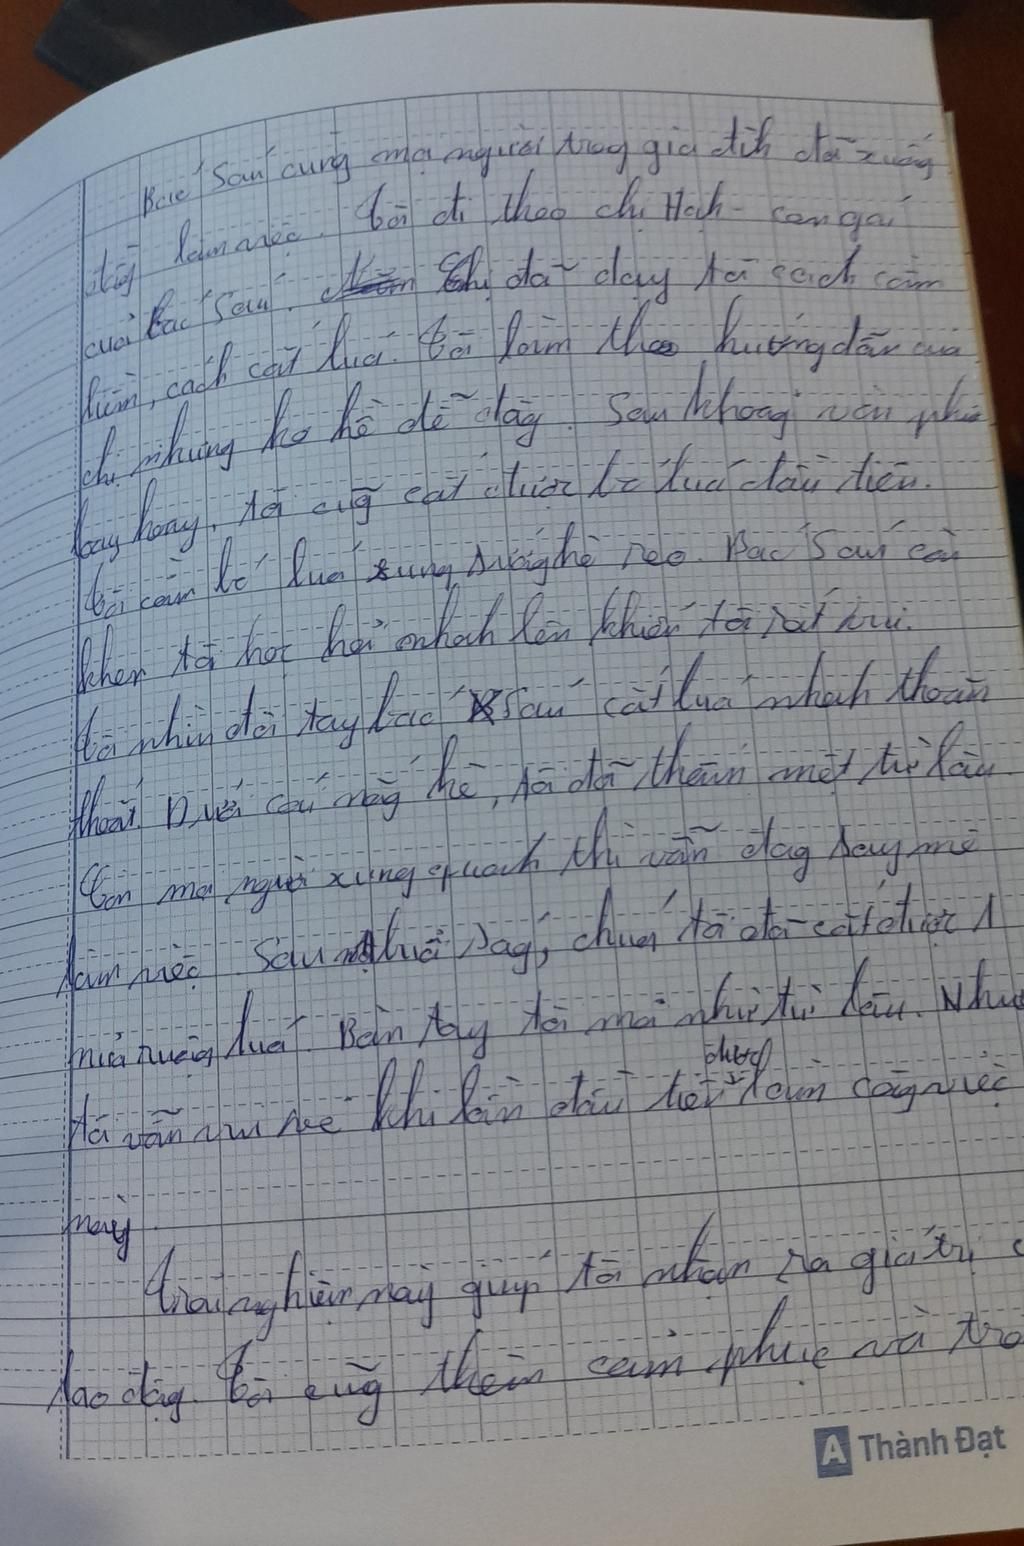 Bác Sáu cùng mọi người trog gia đìh đã xuống
đồg làm việc. Tôi đi theo chị Hạh - con gái
của bác Sáu. Chị đã dạy tôi cách cầm
liềm, cách cắt lúa. Tôi làm theo hướng dẫn của
chị nhưng ko hề dễ dàg. Sau khoảg vài phút
loay hoay, tôi cũg cắt được bó lúa đầu tiên.
Tôi cầm bó lúa sung sướg hò reo. Bác Sáu còn
khen tôi học hỏi nhah lên khiến tôi rất vui.
Tôi nhìn đôi tay bác Sáu cắt lúa nhah thoăn
thoắt. Dưới cái nắg hè, tôi đã thấm mệt từ lâu.
Còn mọi người xung quah thì vẫn đag say mê
làm việc. Sau buổi ság, chúg tôi đã cắt được 1
nửa ruộg lúa. Bàn tay tôi mỏi nhừ từ lâu. Nhưg
tôi vẫn vui vẻ khi lần đầu tiên được làm côg việc
này.
Trải nghiệm này giúp tôi nhận ra giá trị c
lao độg. Tôi cũg thêm cảm phục và trâ
A Thành Đạt